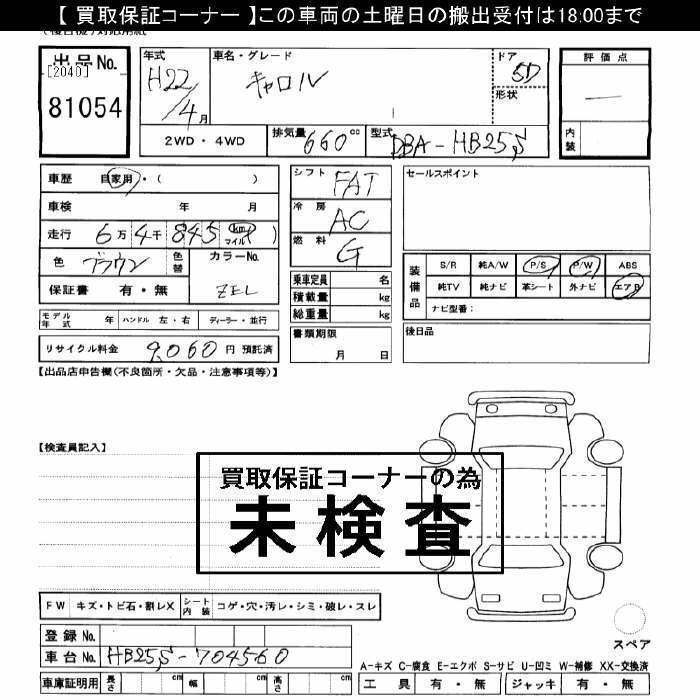 【 買取保証コーナー 】この車両の土曜日の搬出受付は18:00まで
出品No.
[2040]
81054
年式
H22/4月
車名・グレード
キャロル
ドア
5D
形状
評価点
—
内装
2WD・4WD
排気量 660 cc
型式 DBA-HB25S
車歴 自家用・( )
車検 年 月
走行 6万4千845 (km マイル)
色 ブラウン 色替
カラーNo. ZEL
保証書 有・無
モデル年式 年 ハンドル 左・右 ディーラー・並行
リサイクル料金 9,060 円 預託済
シフト FAT
冷房 AC
燃料 G
乗車定員 名
積載量 kg
総重量 kg
書類期限
月 日
セールスポイント
装備品
S/R 純A/W P/S P/W ABS
純TV 純ナビ 革シート 外ナビ エアB
ナビ型番：
後日品
【出品店申告欄(不良箇所・欠品・注意事項等)】
【検査員記入】
買取保証コーナーの為
未検査
FW キズ・トビ石・割レX シート内装 コゲ・穴・汚レ・シミ・破レ・スレ
登録No.
車台No. HB25S-704560
車庫証明用 長さ cm 幅 cm 高さ cm
スペア
A-キズ C-腐食 E-エクボ S-サビ U-凹ミ W-補修 XX-交換済
工具 有・無 ジャッキ 有・無